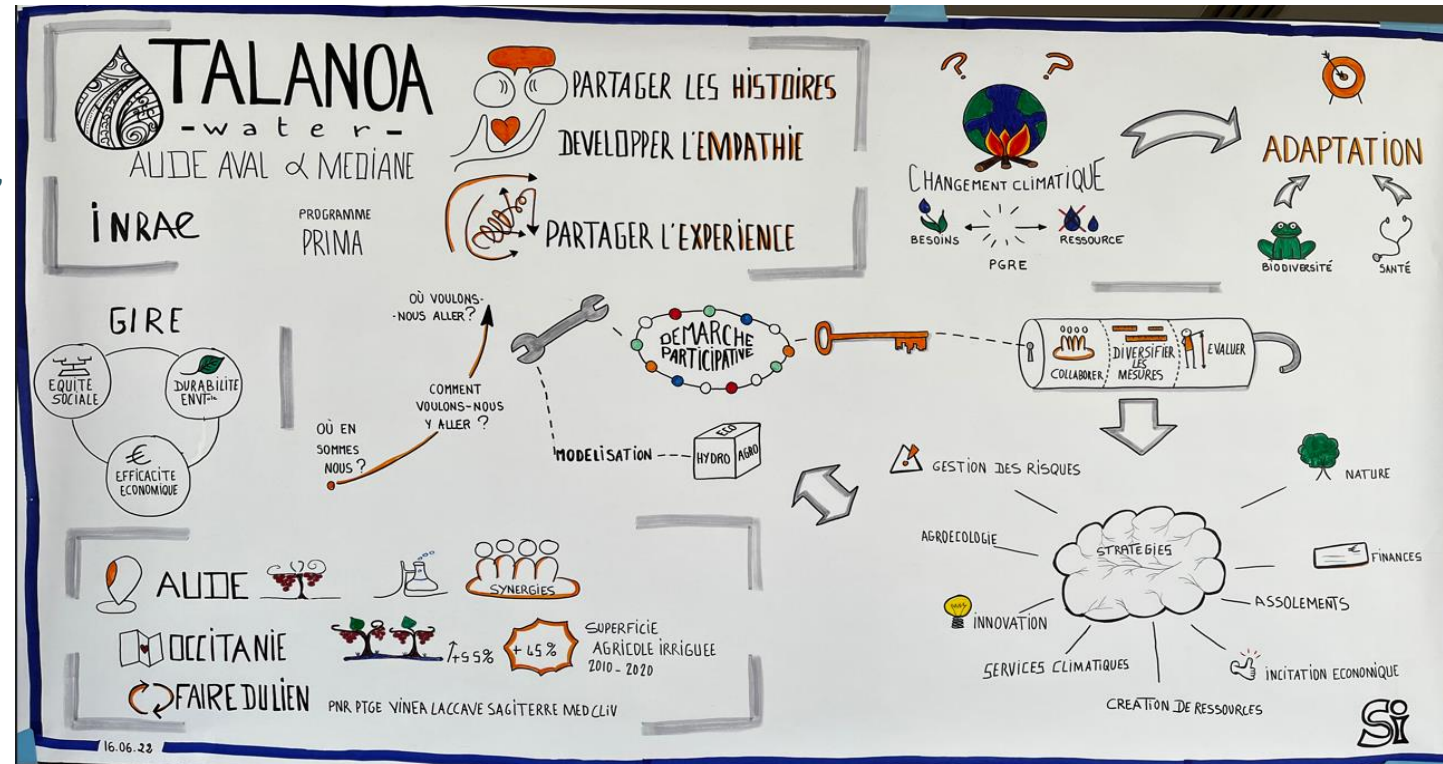 TALANOA
-water-
AUDE AVAL & MEDIANE
INRAE
PROGRAMME
PRIMA
PARTAGER LES HISTOIRES
DEVELOPPER L'EMPATHIE
PARTAGER L'EXPERIENCE
? ?
CHANGEMENT CLIMATIQUE
BESOINS
RESSOURCE
PGRE
ADAPTATION
BIODIVERSITÉ
SANTÉ
GIRE
EQUITE
SOCIALE
DURABILITE
ENVT-ale
€
EFFICACITE
ECONOMIQUE
OÙ EN
SOMMES
NOUS?
COMMENT
VOULONS-NOUS
Y ALLER ?
OÙ VOULONS-
-NOUS ALLER?
DEMARCHE
PARTICIPATIVE
MODELISATION
ECO
HYDRO
AGRO
COLLABORER
DIVERSIFIER
LES
MESURES
EVALUER
GESTION DES RISQUES
NATURE
AGROECOLOGIE
STRATEGIES
FINANCES
INNOVATION
ASSOLEMENTS
SERVICES CLIMATIQUES
INCITATION ECONOMIQUE
CREATION DE RESSOURCES
AUDE
SYNERGIES
OCCITANIE
+55%
+45%
SUPERFICIE
AGRICOLE IRRIGUEE
2010-2020
FAIRE DU LIEN
PNR PTGE VINEA LACCAVE SAGITERRE MEDCLIV
16.06.22
Si